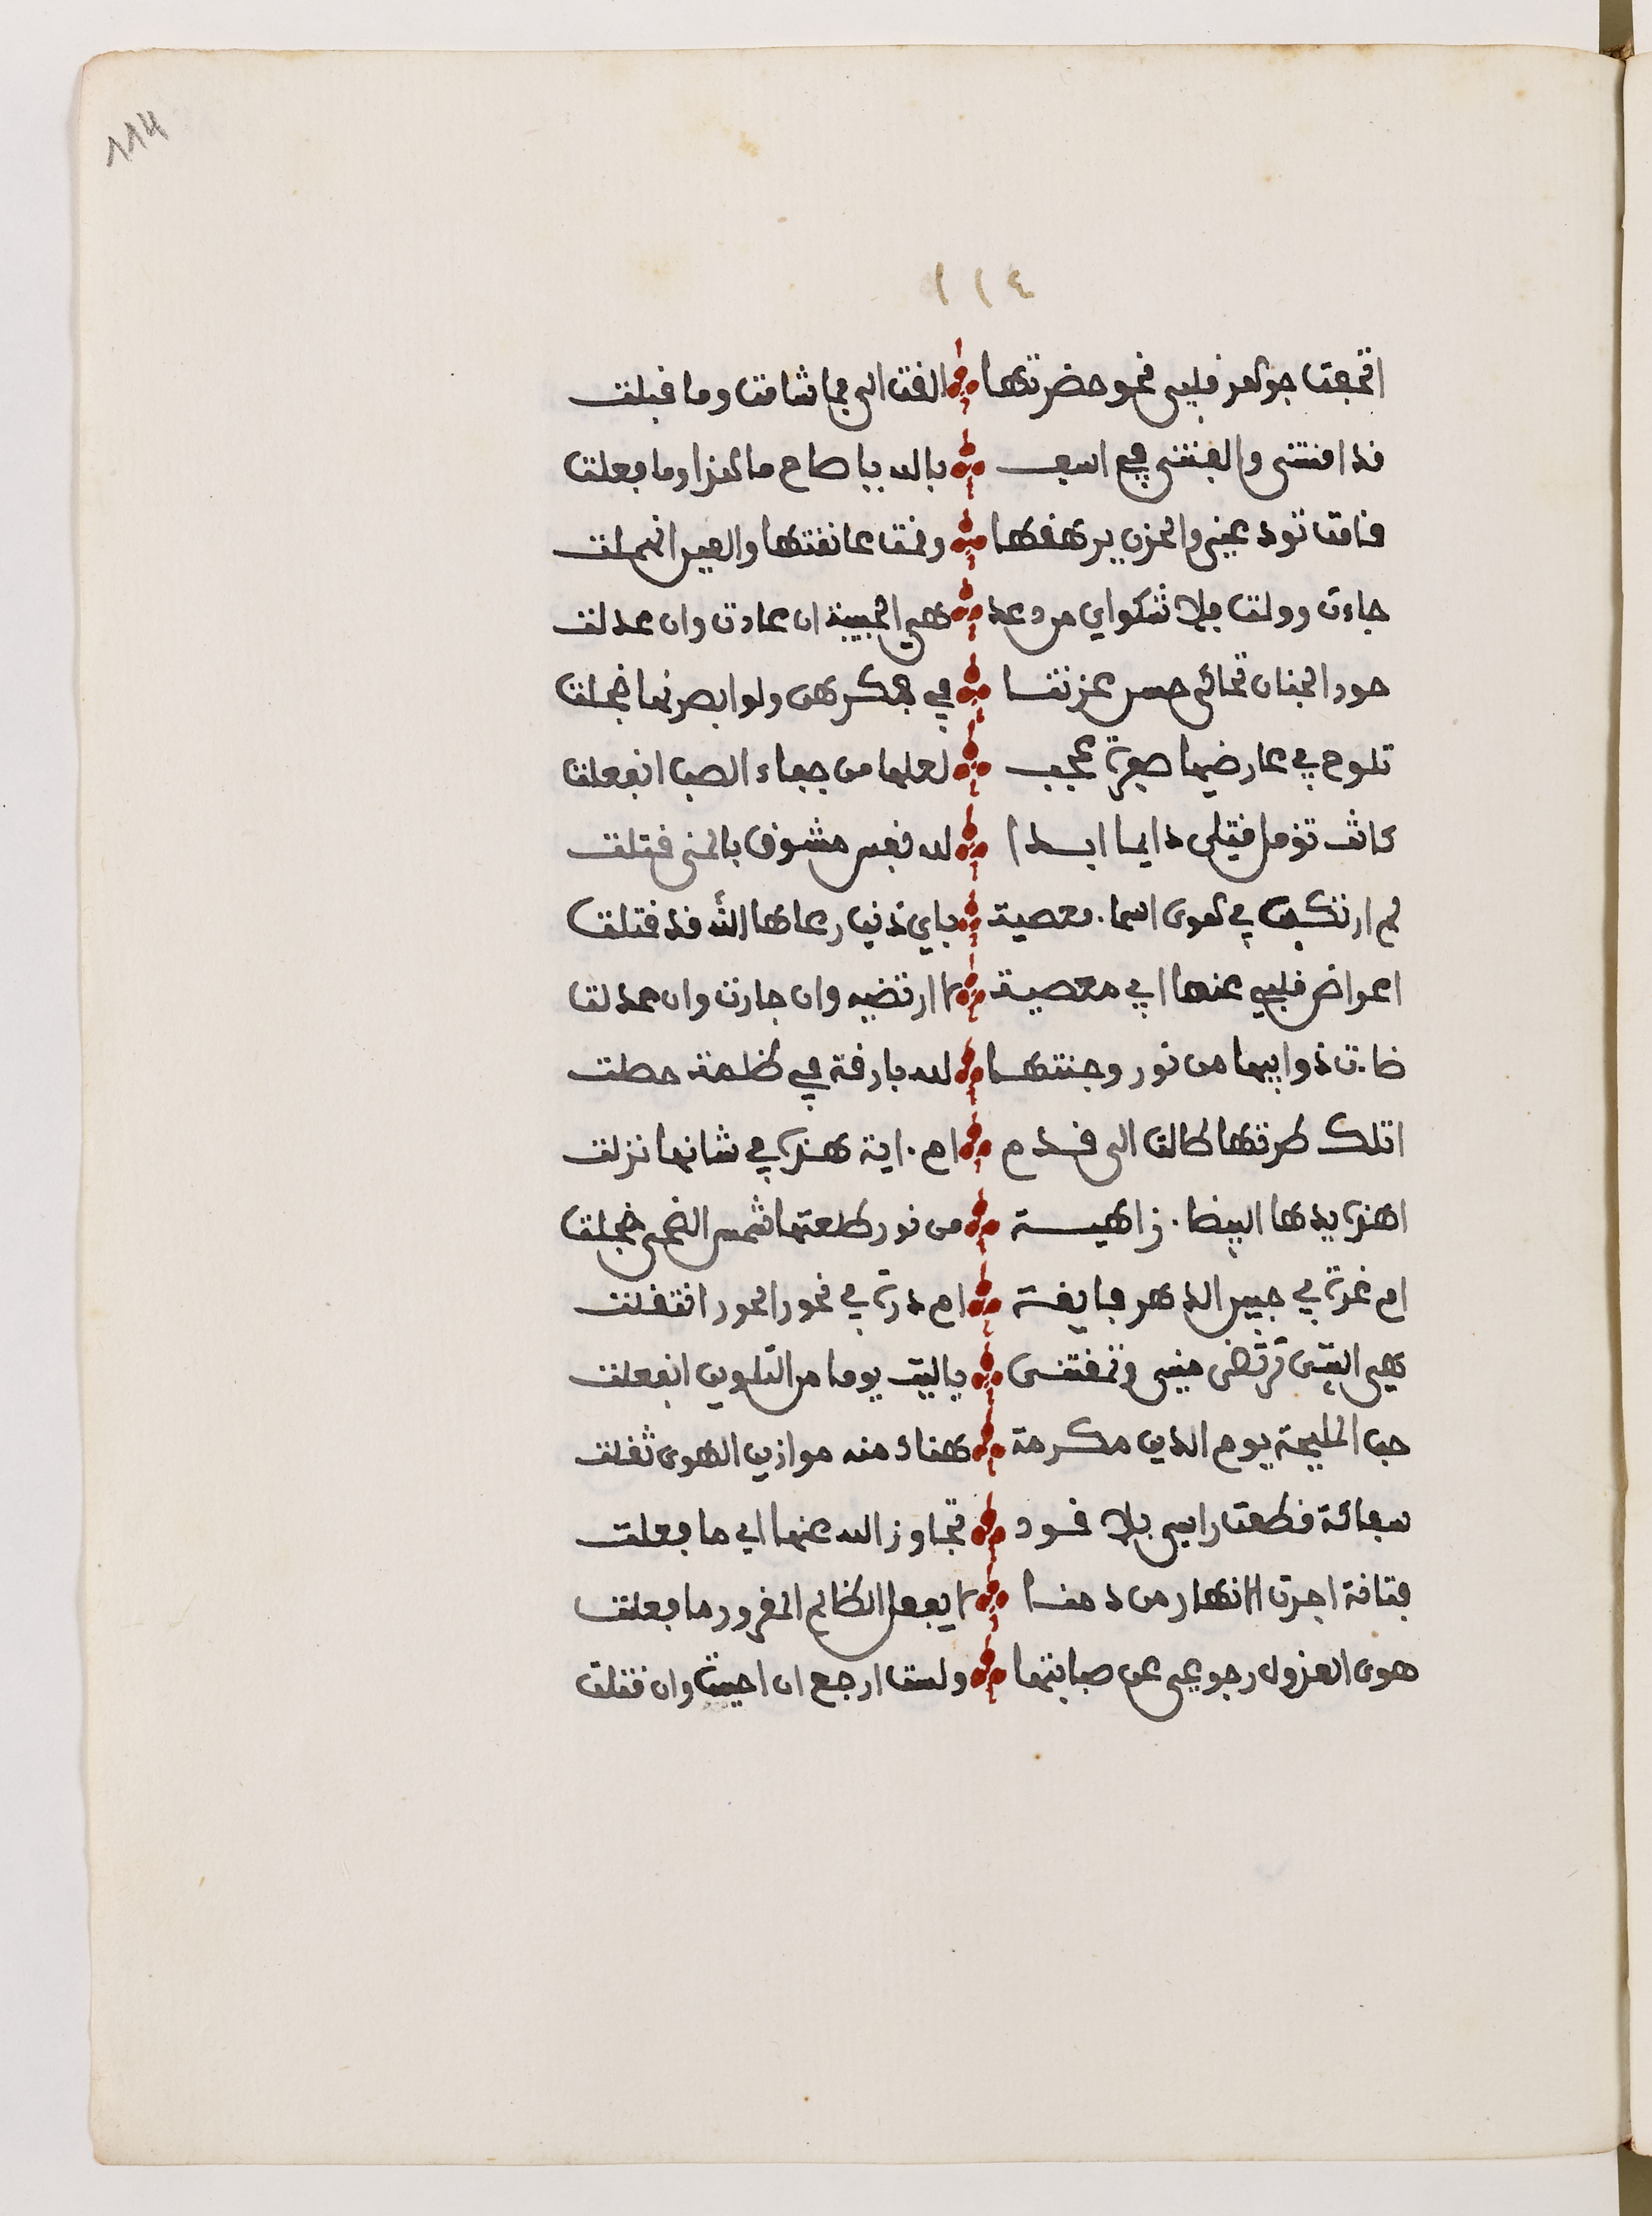 114
١١٤
اتحفت جواهر قلبي نحو حضرتها الفت الى بما شامت وما قبلت
قد امنتنى والفتنى في اسف بالله يا صاح ما هذا وما فعلت
قامت تودعنى والحزن يرهقها وقمت عانقتها والعين انهملت
جاءت وولت فلا شكواى من دعد هي الحبيبة ان عادت وان عدلت
حور الجنان تحاكى حسن عزتنا في فكرهن ولو ابصرنها خجلت
تلوح في عارضيها صفرة عجب لعلها من جفاء الصب انفعلت
كانت تؤمل قتلى دايما ابدا لله نفس مشوق بالمنى قتلت
لم ارتكب في هوى اسماء معصية باي ذنب رعاها الله قد قتلت
اعراض قلبي عنها اي معصية لا ارتضيه وان جارت وان عدلت
ضاءت ذوايبها من نور وجنتها لله بارقة في ظلمة حصلت
اتلك طرتها طالت الى قدم ام اية هذه في شانها نزلت
اهذه يدها البيضاء زاهية من نور طلعتها شمس الضحى خجلت
ام غرة في جبين الدهر فايقة ام درة في نحور الحور انتقلت
هي التى ترتضى منى وتمقتنى يا ليت يوما من التلوين انفعلت
حب المليحة يوم الدين مكرمة هناك منه موازين الهوى ثقلت
سفاكة قطعت راسى بلا قود تجاوز الله عنها اي ما فعلت
فتاقة اجرت الانهار من دمنا لا يفعل الظالم المغرور ما فعلت
هوى العزول رجوعى عن صبابتها ولست ارجع ان احيت وان قتلت